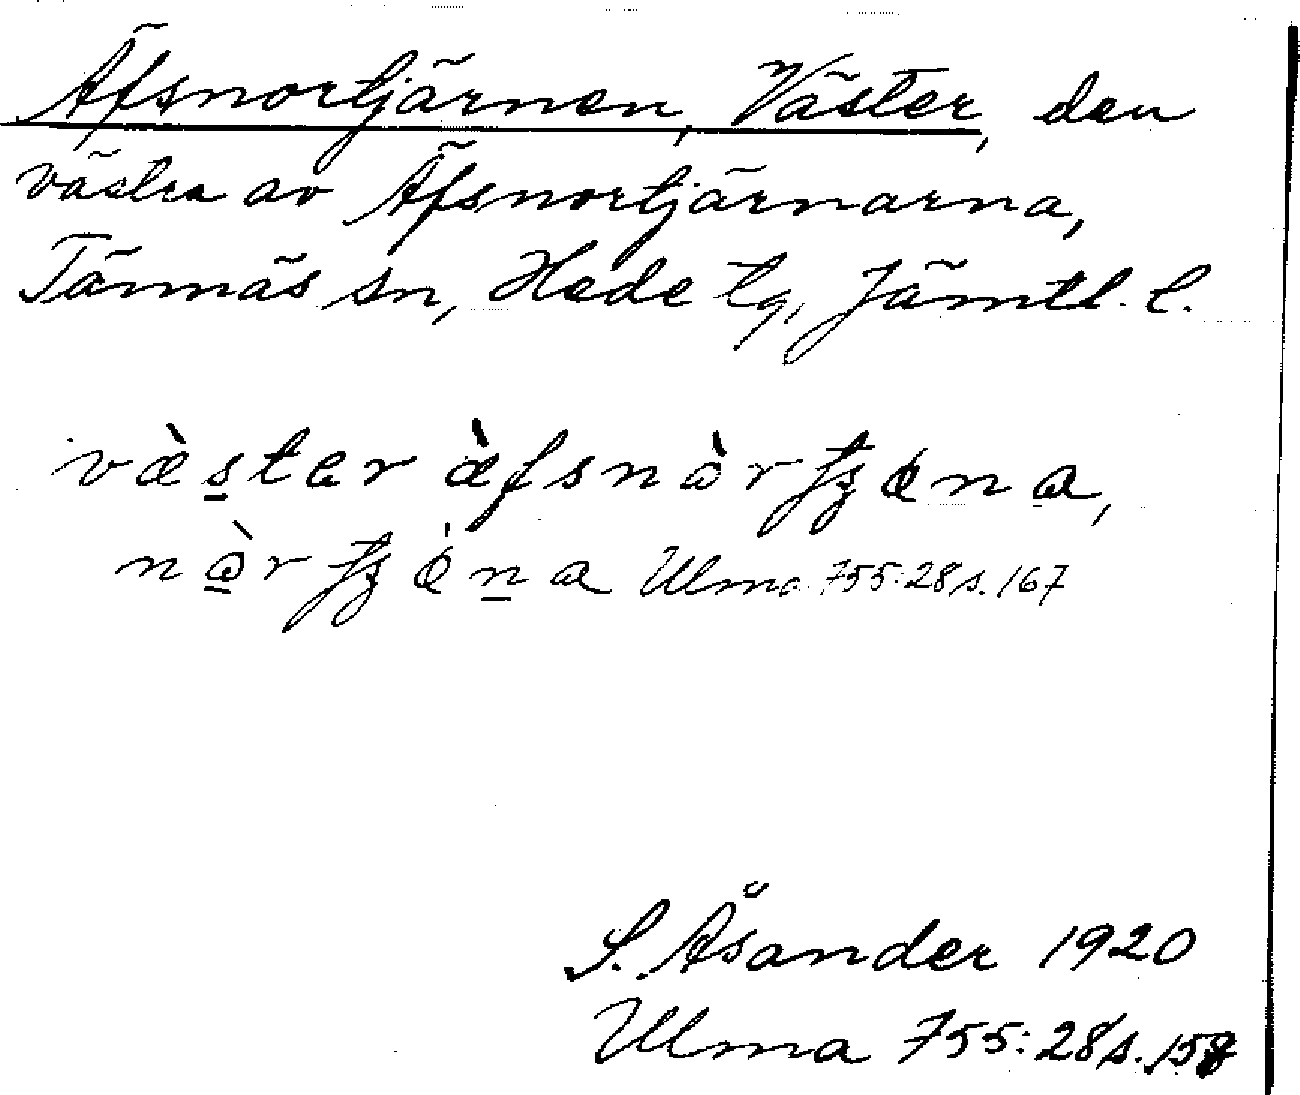 Äfsnortjärnen, Väster, den
västra av Äfsnortjärnarna,
Tännäs sn, Hede tg, Jämtl. l.
væ̀ster æ̀fsnàrʈʂɵna,
nàrʈʂɵ̀na Ulma 755:28 s. 167
S. Åsander 1920
Ulma 755:28 s. 158